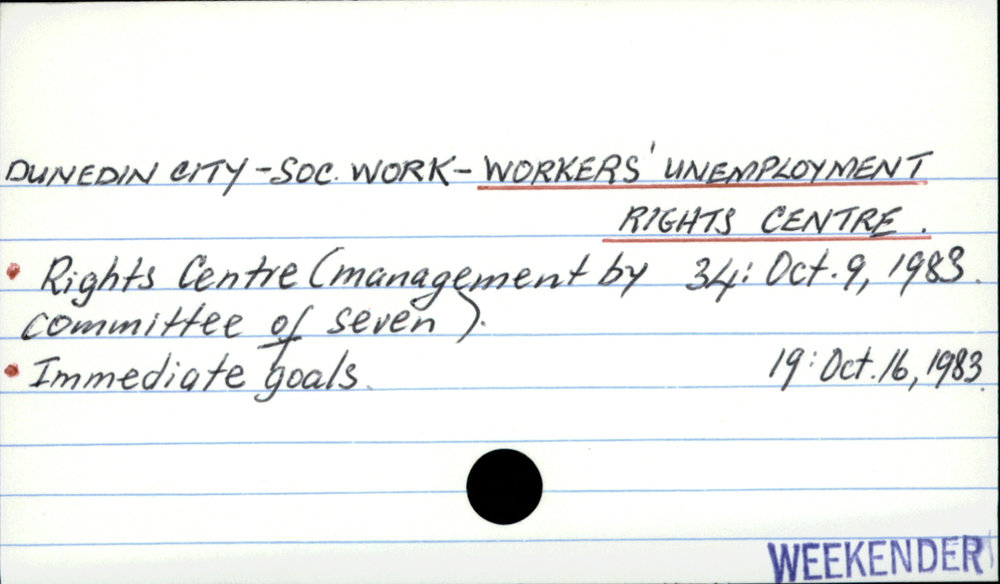 DUNEDIN CITY - SOC. WORK - WORKERS' UNEMPLOYMENT
RIGHTS CENTRE.
• Rights Centre (management by 34: Oct. 9, 1983.
committee of seven).
• Immediate goals. 19: Oct. 16, 1983.
WEEKENDER